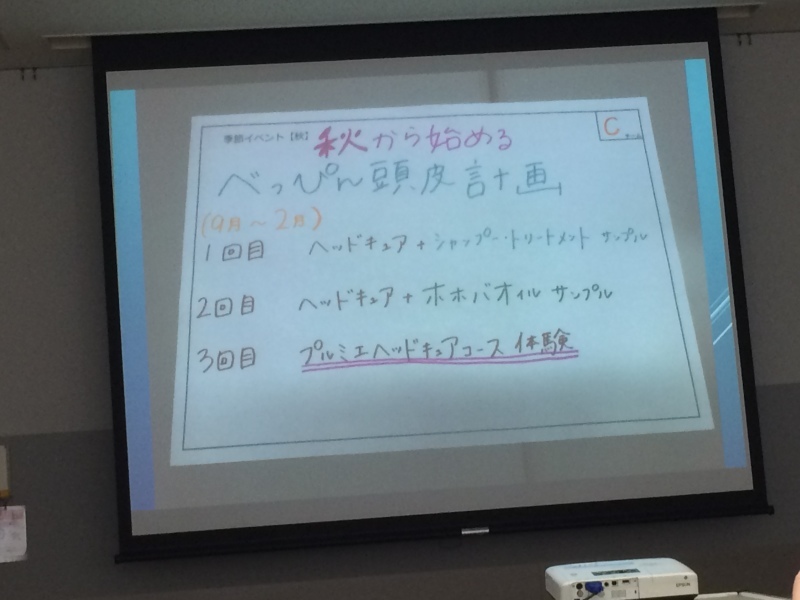 季節イベント【秋】 秋から始める
C チーム
べっぴん頭皮計画
(9月〜2月)
1回目 ヘッドキュア+シャンプー・トリートメント サンプル
2回目 ヘッドキュア+ホホバオイル サンプル
3回目 プルミエヘッドキュアコース 体験
EPSON